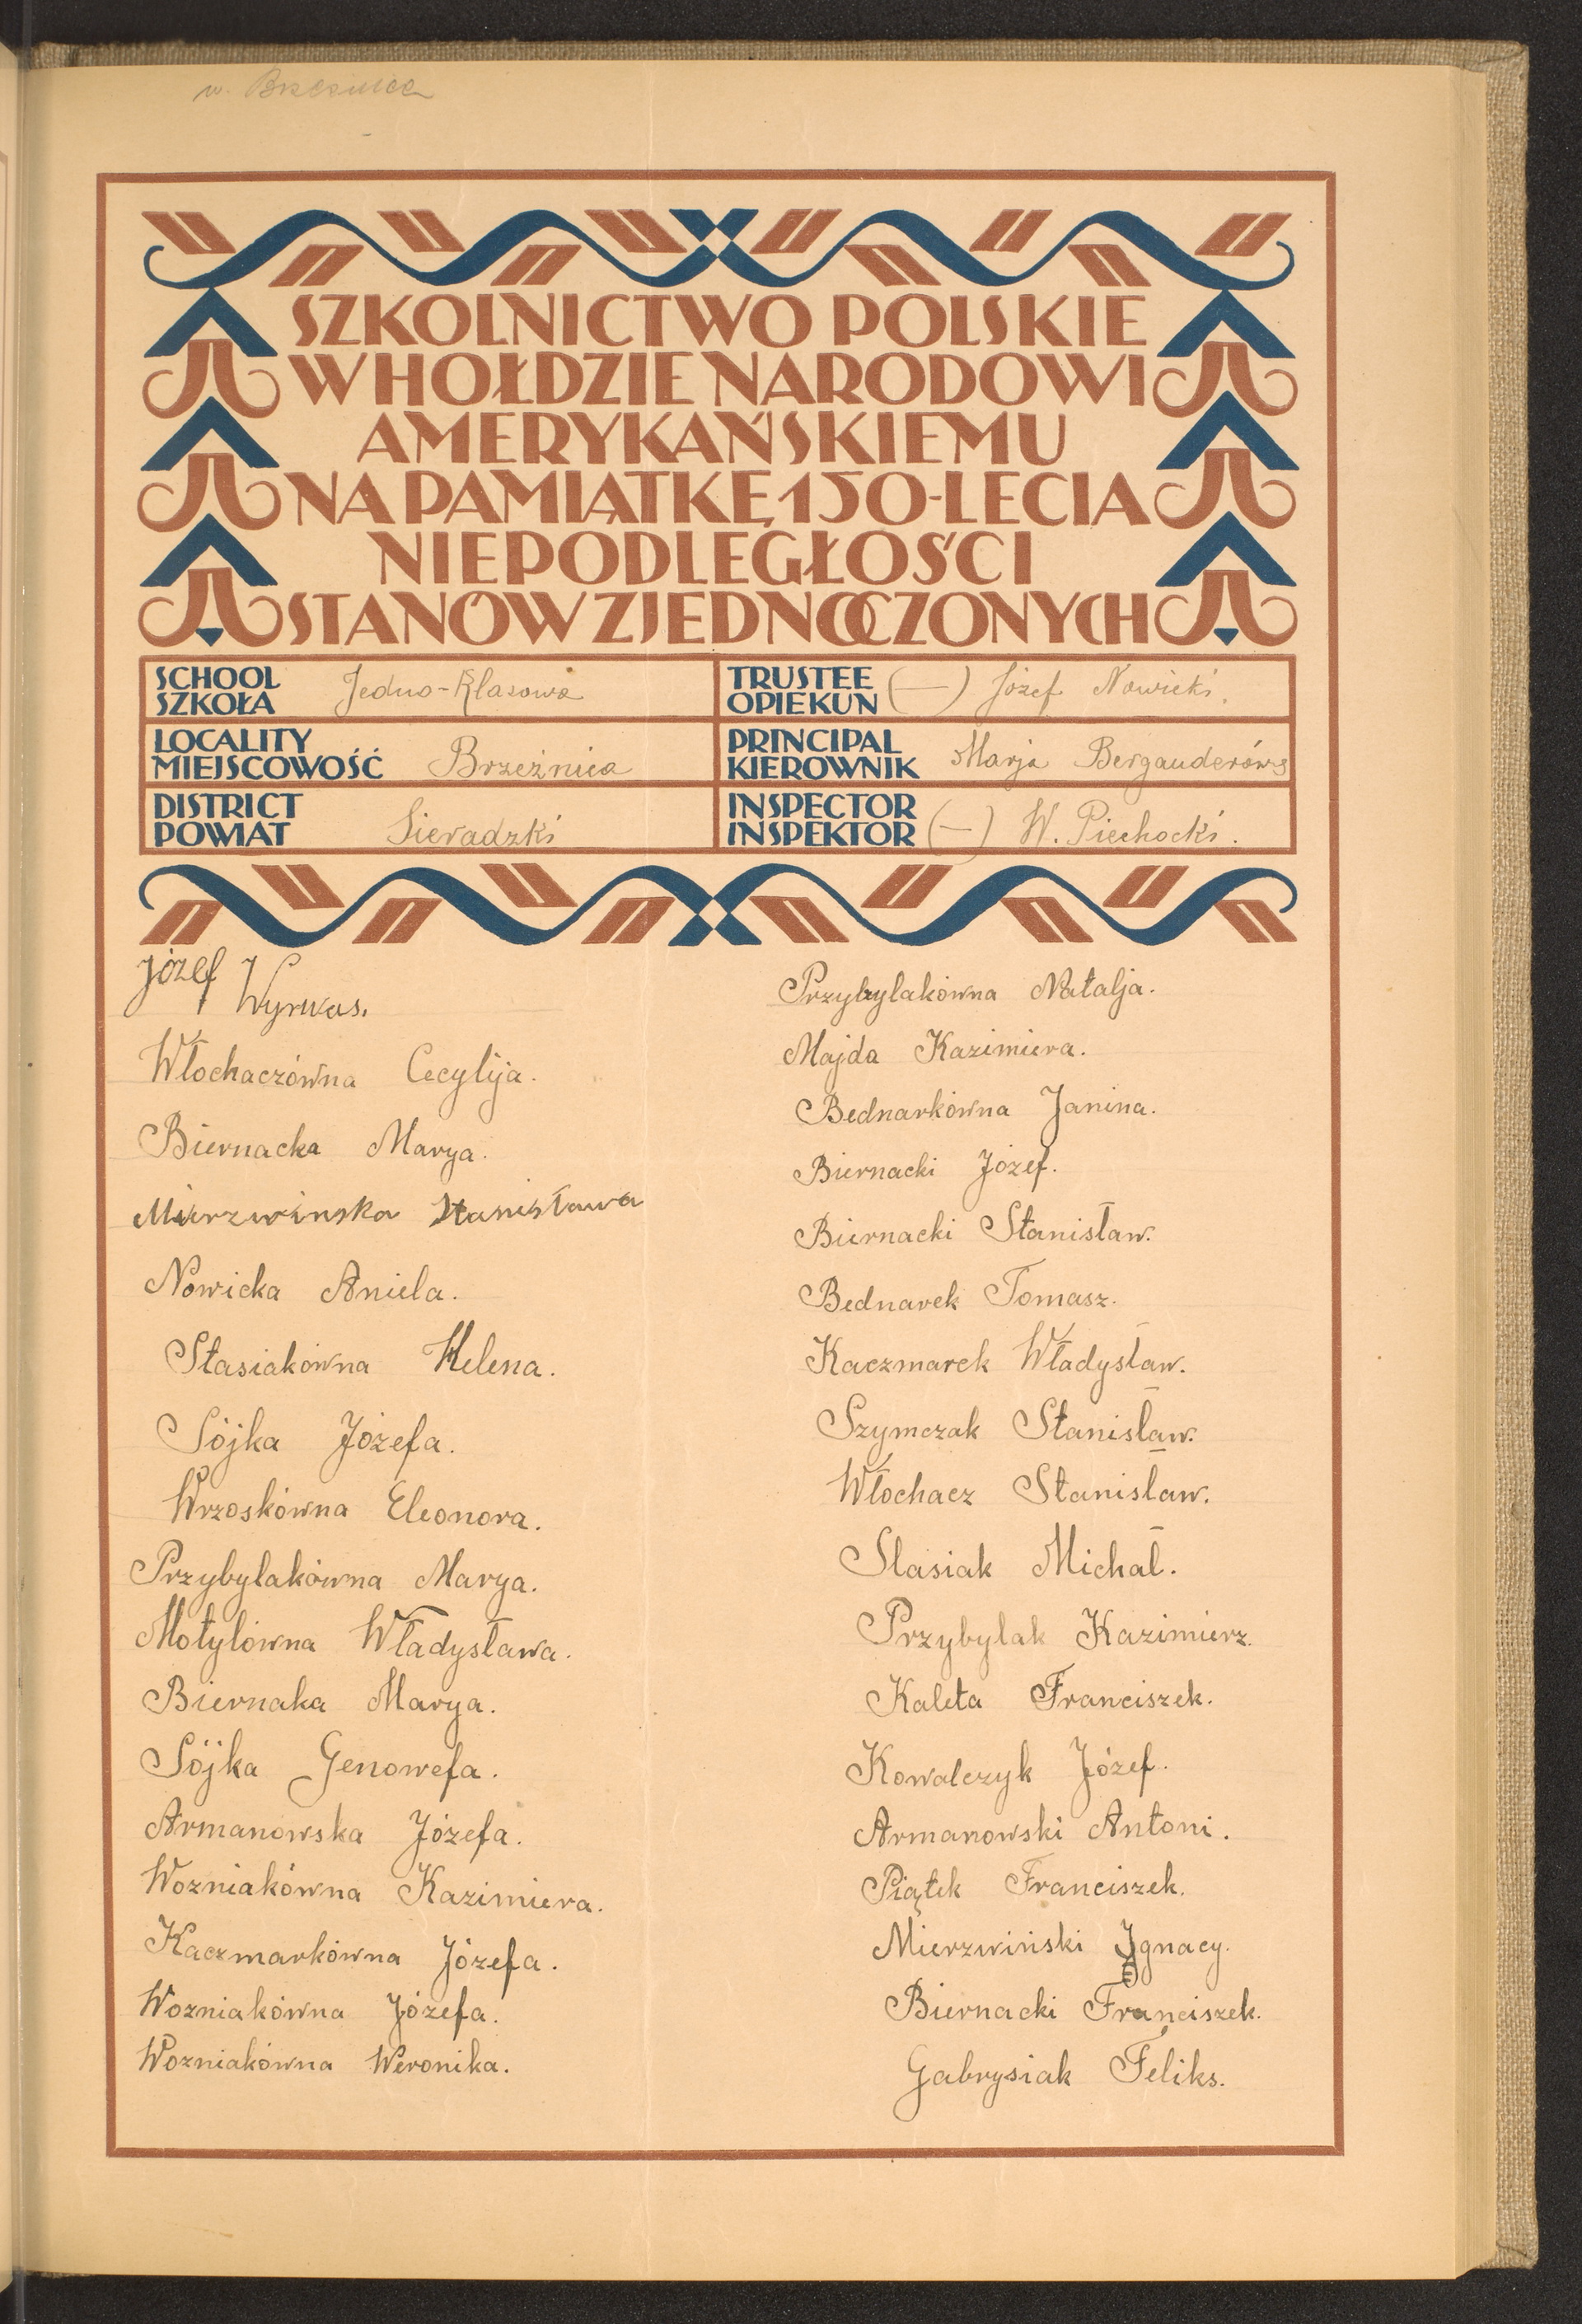 w. Brzeźnica
SZKOLNICTWO POLSKIE
W HOŁDZIE NARODOWI
AMERYKAŃSKIEMU
NA PAMIĄTKĘ 150-LECIA
NIEPODLEGŁOŚCI
STANÓW ZJEDNOCZONYCH
SCHOOL
SZKOŁA
Jedno-Klasowa
TRUSTEE
OPIEKUN
(—) Józef Nowicki.
LOCALITY
MIEJSCOWOŚĆ
Brzeźnica
PRINCIPAL
KIEROWNIK
Marja Bergauderówna
DISTRICT
POWIAT
Sieradzki
INSPECTOR
INSPEKTOR
(—) W. Piechocki.
Józef
Wyrwas.
Włochaczówna Cecylija.
Biernacka Marya.
Mierzwinska Stanisława
Nowicka Aniela.
Stasiakówna Helena.
Sójka Józefa.
Wrzoskówna Eleonora.
Przybylakówna Marya.
Motylówna Władysława.
Biernaka Marya.
Sójka Genowefa.
Armanowska Józefa.
Wozniakówna Kazimiera.
Kaczmarkówna Józefa.
Wozniakówna Józefa.
Wozniakówna Weronika.
Przybylakówna Natalja.
Majda Kazimiera.
Bednarkówna Janina.
Biernacki Józef.
Biernacki Stanisław.
Bednarek Tomasz.
Kaczmarek Władysław.
Szymczak Stanisław.
Włochacz Stanisław.
Stasiak Michał.
Przybylak Kazimierz.
Kaleta Franciszek.
Kowalczyk Józef.
Armanowski Antoni.
Piątek Franciszek.
Mierzwiński Ignacy.
Biernacki Franciszek.
Gabrysiak Feliks.